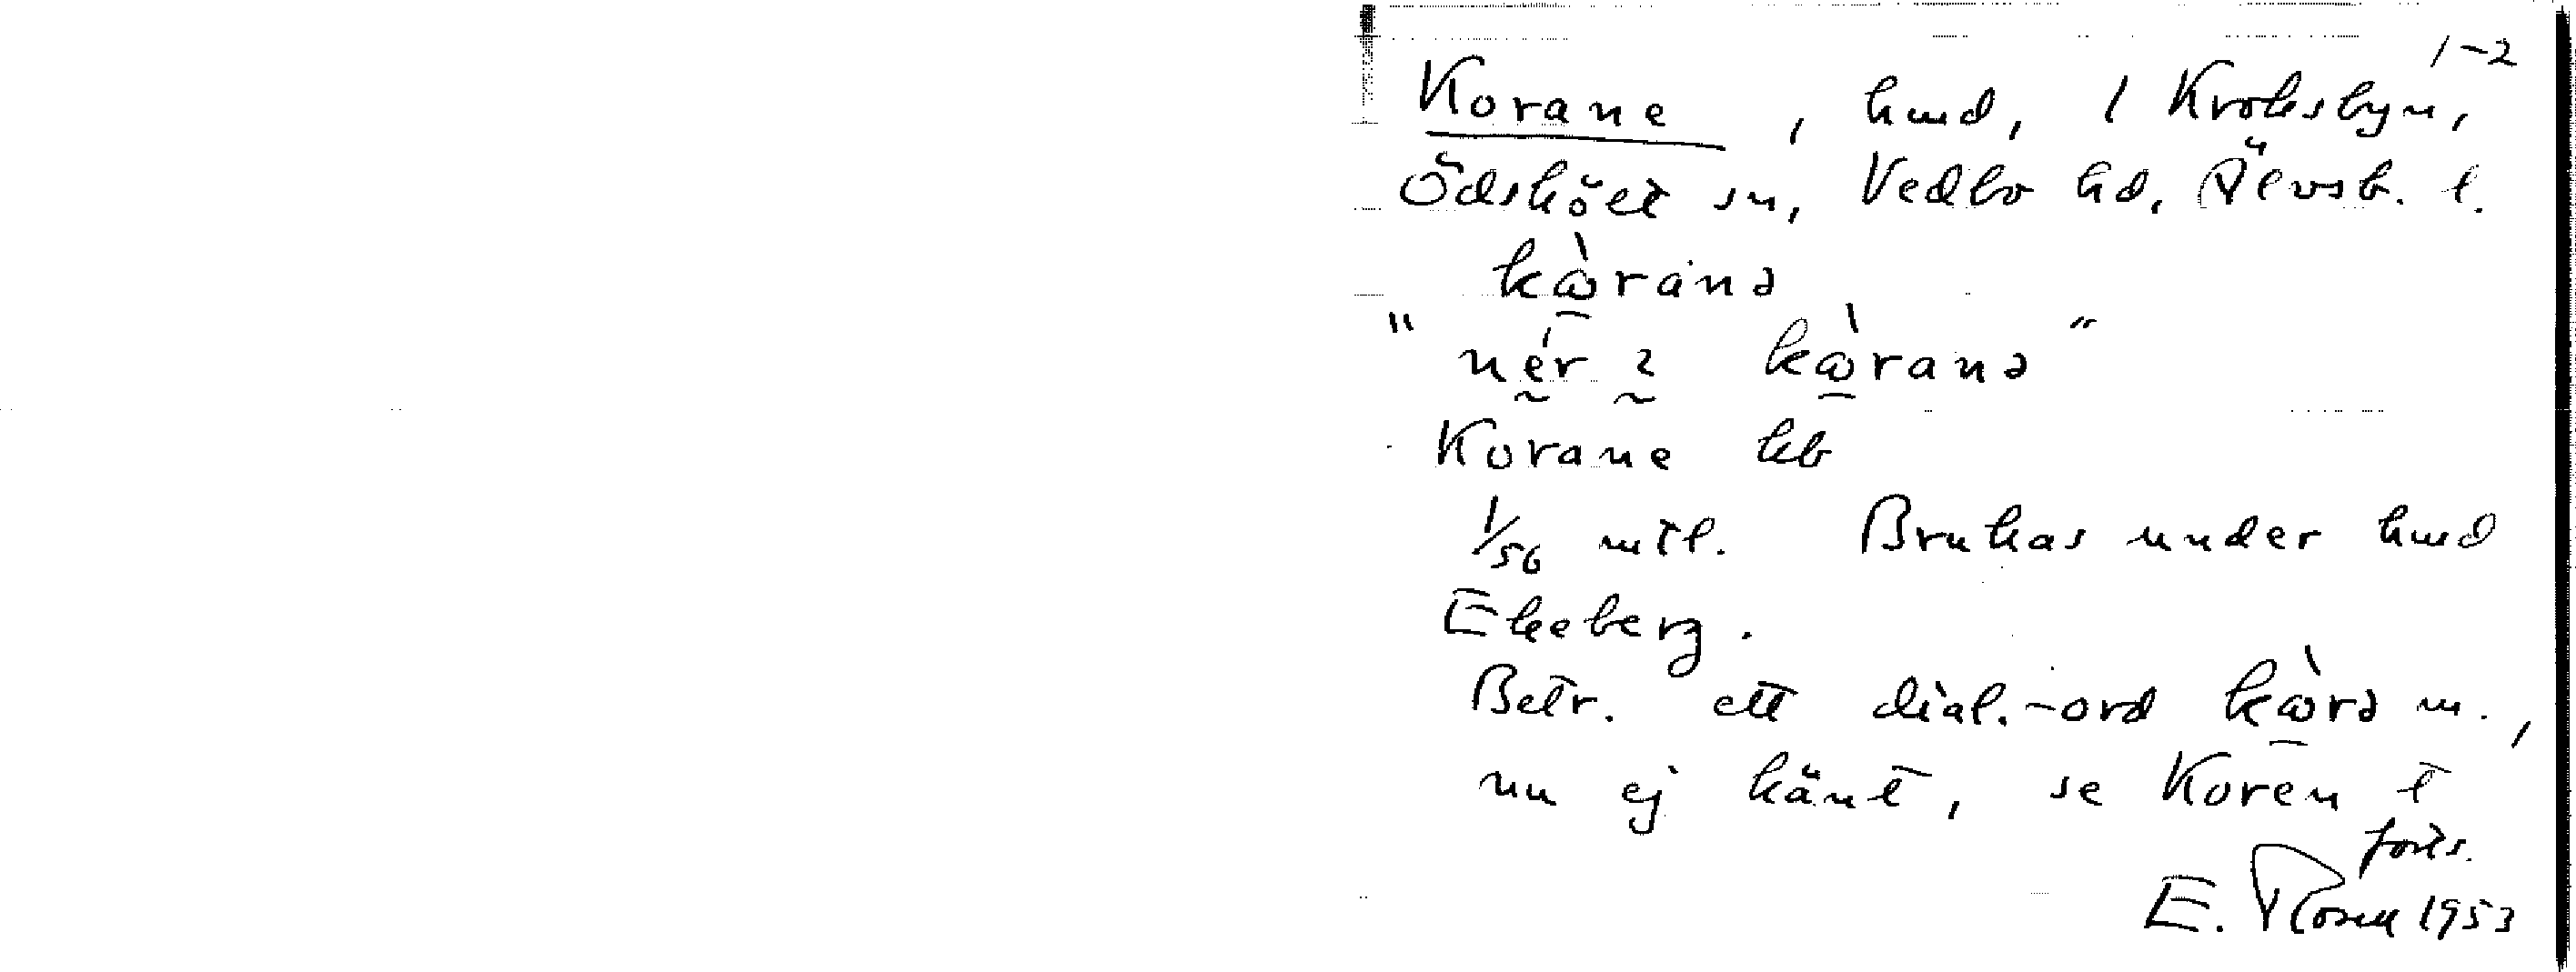 1-2
Korane, hmd, 1 Kroksbyn,
Ödskölt sn, Vedbo hd, Älvsb. l.
kὼranə
"nér i kὼranə"
Korane kb
1/56 mtl. Brukas under hmd
Ekeberg.
Betr. ett dial.-ord kὼrə m.,
nu ej känt, se Koren t
forts.
E. Rosell 1953